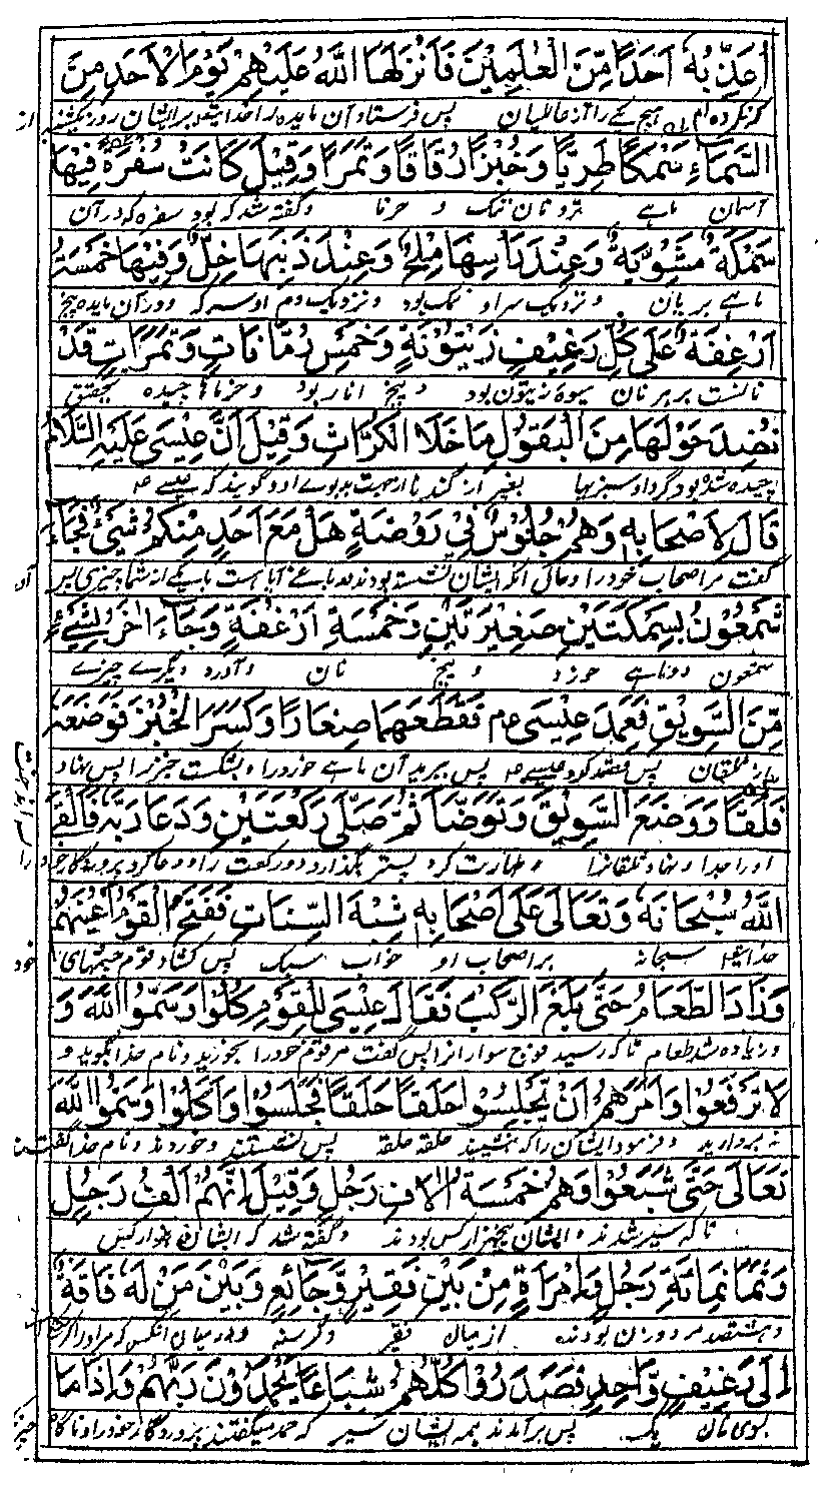 اُعَذِّبُهٗ اَحَدًا مِّنَ الْعٰلَمِيْنَ فَاَنْزَلَهَا اللّٰهُ عَلَيْهِمْ يَوْمَ الْاَحَدِ مِنَ
پس فرستاد آن مايده را خدايتعالى بر ايشان روز يكشنبه از
السَّمَاءِ سَمَكًا طَرِيًّا وَخُبْزًا رُقَاقًا وَتَمَرًا وَقِيْلَ كَانَتْ سُفْرَةٌ فِيْهَا
آسمان ماہے تر و نان تنک و خرما و گفته شد که بود سفره که در آن
سَمَكَةٌ مَشْوِيَّةٌ وَعِنْدَ رَاسِهَا مِلْحٌ وَعِنْدَ ذَنَبِهَا خِلٌّ وَفِيْهَا خَمْسَةُ
ماہے بریان و نزدیک سر او نمک بود و نزدیک دم او سرکه و در آن مایده پنج
اَرْغِفَةٍ عَلٰى كُلِّ رَغِيْفٍ زَيْتُوْنَةٌ وَخَمْسُ رُمَّانَاتٍ وَتَمَرَاتٍ قَدْ
نان است بر هر نان میوه زیتون بود و پنج انار بود و خرماها چیده بتحقیق
نُضِّدَ حَوْلَهَا مِنَ الْبَقُوْلِ مَا خَلَا الْكُرَّاثِ وَقِيْلَ اَنَّ عِيْسٰى عَلَيْهِ السَّلَامُ
چیده شده بود گرد او سبزیها بغیر از گندنا از جهت بدبوے او و گویند که عیسے ع
قَالَ لِاَصْحَابِهٖ وَهُمْ جُلُوْسٌ فِيْ رَوْضَةٍ هَلْ مَعَ اَحَدٍ مِنْكُمْ شَيْئٌ فَجَاءَ
گفت مر اصحاب خود را و حال آنکه ایشان نشسته بودند در باغے آیا هست با یکے از شما چیزی پس آمد
شَمْعُوْنُ بِسَمَكَتَيْنِ صَغِيْرَتَيْنِ وَخَمْسَةِ اَرْغِفَةٍ وَجَاءَ اٰخَرُ بِشَيْءٍ
شمعون دو ماہے خورد و پنج نان و آورد دیگرے چیزے
مِّنَ السَّوِيْقِ فَعَمِدَ عِيْسٰى عم فَقَطَعَهُمَا صِغَارًا وَكَسَرَ الْخُبْزَ فَوَضَعَهٗ
پس قصد کرد عیسے ع پس ببرید آن ماہے خورد را و بشکست خبز را پس بنهاد
فَلَقًا وَوَضَعَ السَّوِيْقَ وَتَوَضَّأَ ثُمَّ صَلّٰى رَكْعَتَيْنِ وَدَعَا رَبَّهٗ فَاَلْقٰى
او را جدا و بنهاد تلقانرا و طهارت کرد پستر بگذارد دو رکعت را و دعا کرد پروردگار خود را
اللّٰهُ سُبْحَانَهٗ وَتَعَالٰى عَلٰى اَصْحَابِهٖ شِبْهَ السِّنَاتِ فَفَتَحَ الْقَوْمُ اَعْيُنَهُمْ
خدایتعالی سبحانه بر اصحاب او خواب سبک پس کشاد قوم چشمهای خود
وَزَادَ الطَّعَامُ حَتّٰى بَلَغَ الرَّكْبَ فَقَالَ عِيْسٰى لِلْقَوْمِ كُلُوْا وَسَمُّوا اللّٰهَ وَ
و زیاده شد طعام تا که رسید فوج سوارانرا پس گفت مر قوم خود را بخورید و نام خدا بگویید و
لَا تَرْفَعُوْا وَاَمَرَهُمْ اَنْ يَّجْلِسُوْا حَلَقًا حَلَقًا فَجَلَسُوْا وَاَكَلُوْا وَسَمُّوا اللّٰهَ
نه بردارید و فرمود ایشان را که بنشینند حلقه حلقه پس نشستند و خوردند و نام خدا گفتند
تَعَالٰى حَتّٰى شَبِعُوْا وَهُمْ خَمْسَةُ اٰلَافِ رَجُلٍ وَقِيْلَ اِنَّهُمْ اَلْفُ رَجُلٍ
تا که سیر شدند و ایشان پنجهزار کس بودند و گفته شد که ایشان هزار کس
وَثَمَانِمِائَةِ رَجُلٍ وَامْرَأَةٍ مِنْ بَيْنِ فَقِيْرٍ وَّجَائِعٍ وَبَيْنَ مَنْ لَهٗ فَاقَةٌ
و هشتصد مرد و زن بودند از میان فقیر و گرسنه و در میان آنکس که مر او را
اِلٰى رَغِيْفٍ وَّاحِدٍ فَصَدَرُوْا كُلُّهُمْ شِبَاعًا يَحْمَدُوْنَ رَبَّهُمْ وَاِذَا مَا
بسوی نان یک پس برآمدند همه ایشان سیر که حمد میگفتند پروردگار خود را و ناگاه